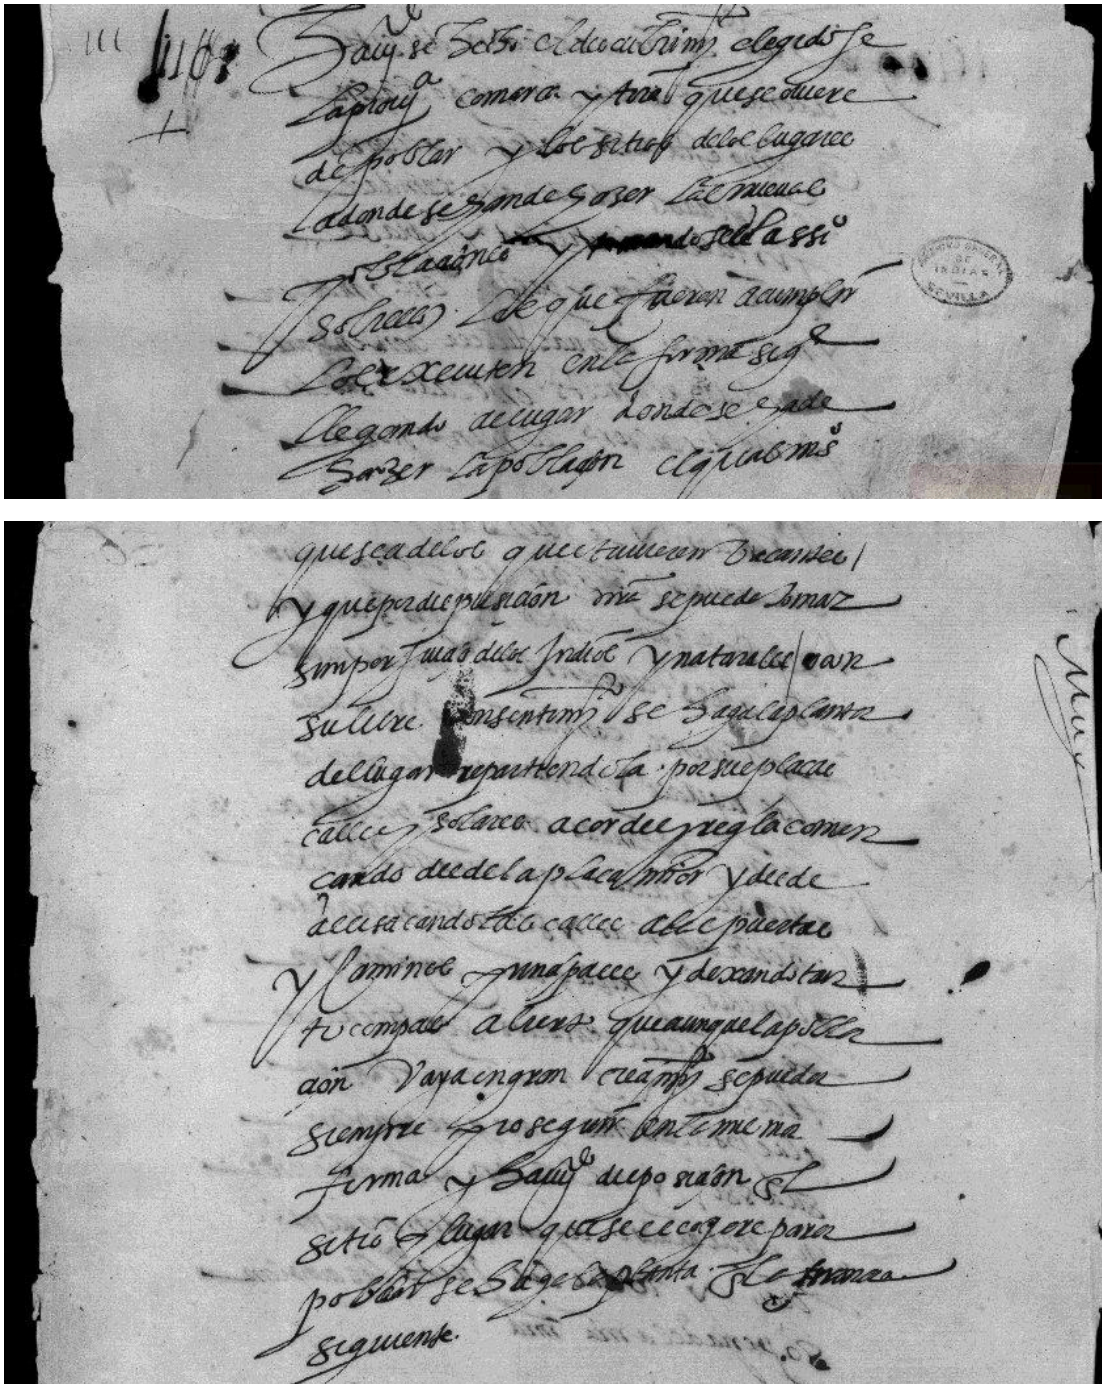 111 110
Haviº se hecho el descubrimiº elegidose
la provª comarca y trrª que se oviere
de poblar y los sitios de los lugares
adonde se han de hazer las nuevas
poblaciones y tomandose el assiº
sobre ello. Los que fueren a cumplir
los executen en la forma sigᵉ
llegando al lugar donde se ha de
hazer la poblaçion el qual mⁿdº
que sea de los que estuvieren vacantes /
y que por disposicion nrã se pueda tomar
sin perjuizº de los Indios y naturales / o con
su libre consentimº se haga la planta
del lugar repartiendola por sus plaças
calles y solares a cordel y regla comen
çando desde la plaça mºior y desde
alli sacando las calles a las puertas
y caminos principales y dexando tan
to compas abierto que aunque la pobla
çion vaya en gran creçimº se pueda
siempre proseguir en la mesma
forma y haviº disposiçion en el
sitio y lugar que se escogiere para
poblar se haga la planta en la manera
siguiente.
ARCHIVO GENERAL
DE
INDIAS
SEVILLA